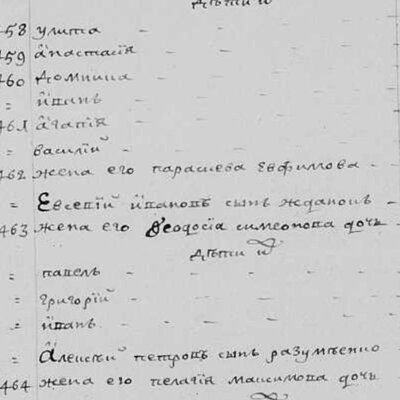 дѣти и҃
458 улита - - - -
459 анастасїя - - - -
460 домника - - - -
= їванъ - - - -
461 агапїя - - - -
= василїй - - - -
462 жена его параскева евфимова -
= Евсевїй ївановъ сынъ ждановъ -
463 жена его Ѳеодосїа симеонова дочь
дѣти и҃
= павелъ - - - -
= григорїй - - - -
= їванъ - - - -
= Алексѣй петровъ сынъ разумѣенко
464 жена его пелагїя максимова дочь